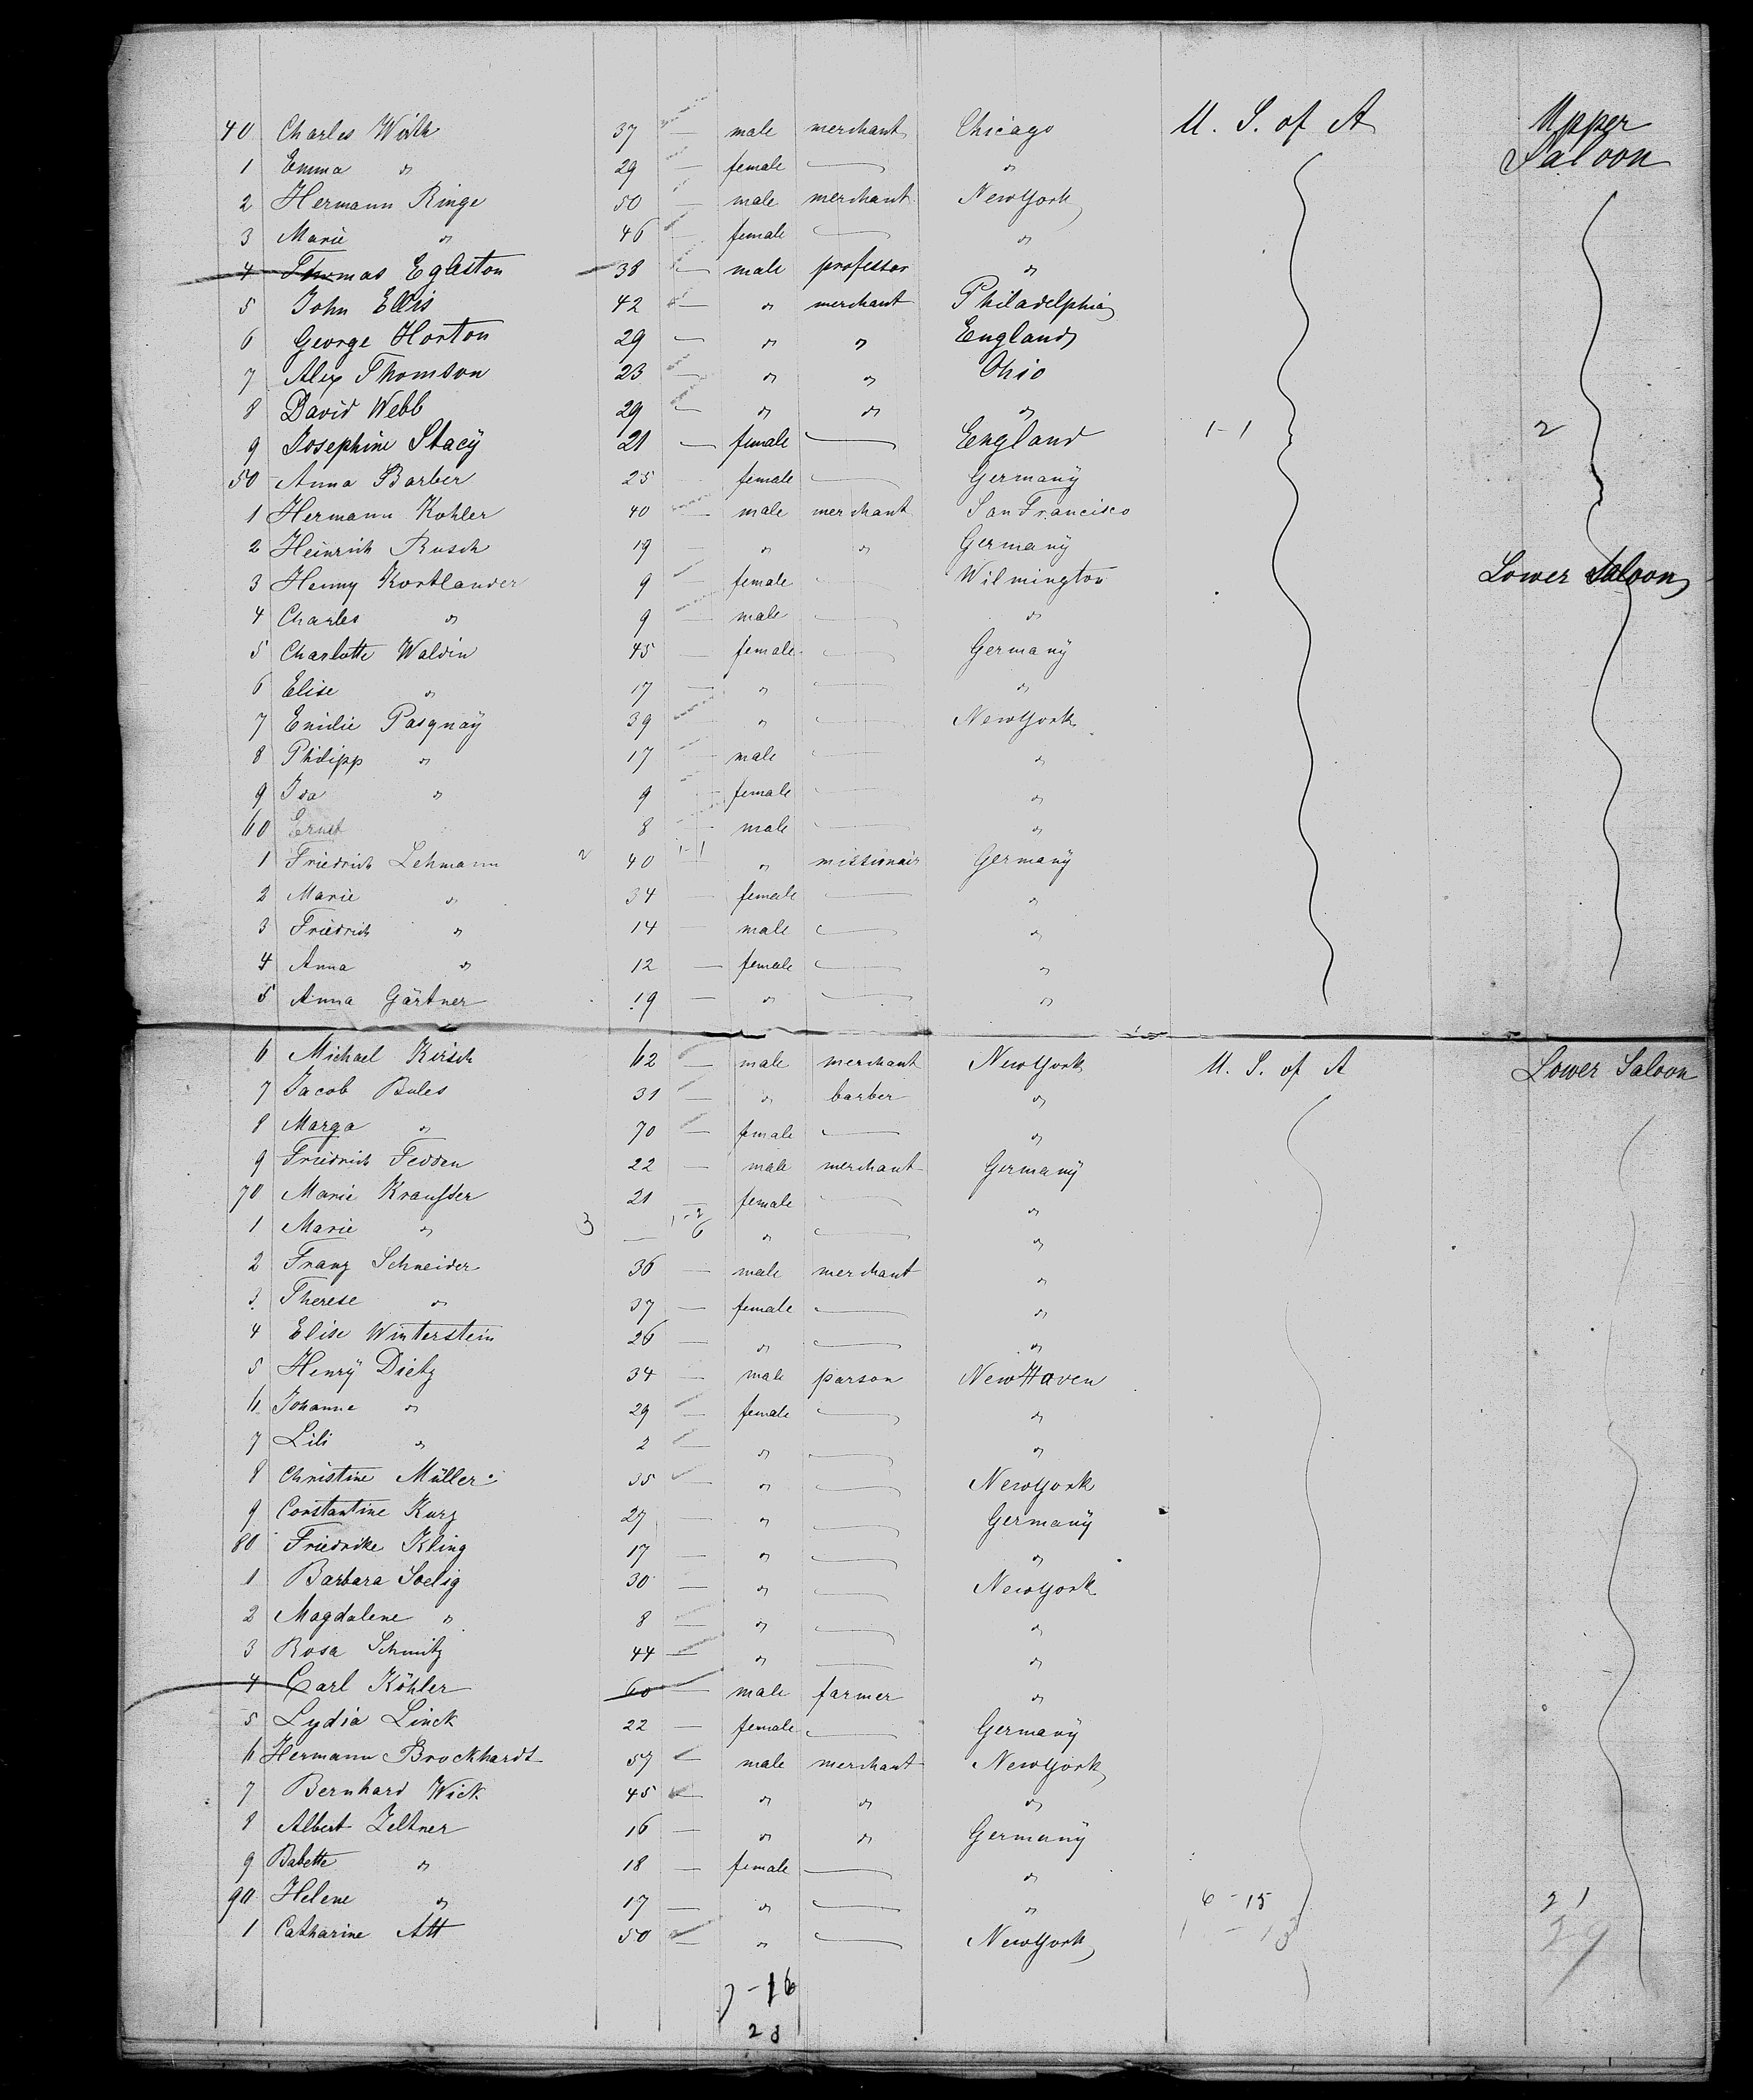 40 Charles Wirth 37 — male merchant Chicago U. S. of A Upper Saloon
1 Emma " 29 — female — "
2 Hermann Ringe 50 — male merchant New York
3 Marie " 46 — female — "
4 Thomas Egleston 38 — male professor "
5 John Ellis 42 — " merchant Philadelphia
6 George Horton 29 — " " England
7 Alex Thomson 23 — " " Ohio
8 David Webb 29 — " " "
9 Josephine Stacÿ 21 — female — England 1-1 2
50 Anna Barber 25 female — Germanÿ
1 Hermann Kohler 40 — male merchant San Francisco
2 Heinrich Rusch 19 — " " Germanÿ
3 Henny Kortlander 9 — female — Wilmington Lower Saloon
4 Charles " 9 — male — "
5 Charlotte Waldin 45 — female — Germanÿ
6 Elise " 17 — " — "
7 Emilie Pasquaÿ 39 — " — New York
8 Philipp " 17 — male — "
9 Ida " 9 — female — "
60 Ernst 8 — male — "
1 Friedrich Lehmann 2 40 1-1 " missionair Germanÿ
2 Marie " 34 — female — "
3 Friedrich " 14 — male — "
4 Anna " 12 — female — "
5 Anna Gärtner 19 — " — "
6 Michael Kirsch 62 — male merchant New York U. S. of A Lower Saloon
7 Jacob Bules 31 — " barber "
8 Marga " 70 — female — "
9 Friedrich Fedden 22 — male merchant Germanÿ
70 Marie 21 — female — "
1 Marie " 3 — 6 " — "
2 Franz Schneider 36 — male merchant "
3 Therese " 37 — female — "
4 Elise Winterstein 26 — " — "
5 Henrÿ Dietz 34 — male parson New Haven
6 Johanne " 29 — female — "
7 Lili " 2 — " — "
8 Christine Müller 35 — " — New York
9 Constantine Kurz 27 — " — Germanÿ
80 Friedrike Kling 17 — " — "
1 Barbara Soelig 30 — " — New York
2 Magdalene " 8 — " — "
3 Rosa Schmitz 44 — " — "
4 Carl Köhler 60 — male farmer "
5 Lydia Linck 22 — female — Germanÿ
6 Hermann Brockhardt 57 — male merchant New York
7 Bernhard Wick 45 — " " "
8 Albert Zeltner 16 — " " Germanÿ
9 Babette " 18 — female — "
90 Helene " 17 — " — " 6-15 21
1 Catharine Att 50 — " — New York 29
7-16
23